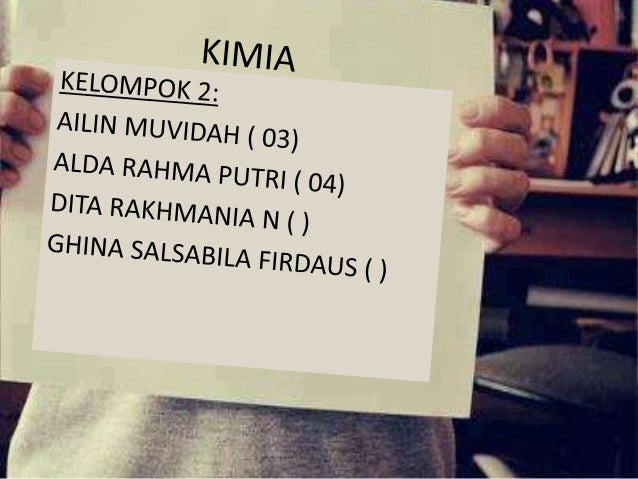 KIMIA
KELOMPOK 2:
AILIN MUVIDAH ( 03)
ALDA RAHMA PUTRI ( 04)
DITA RAKHMANIA N ( )
GHINA SALSABILA FIRDAUS ( )